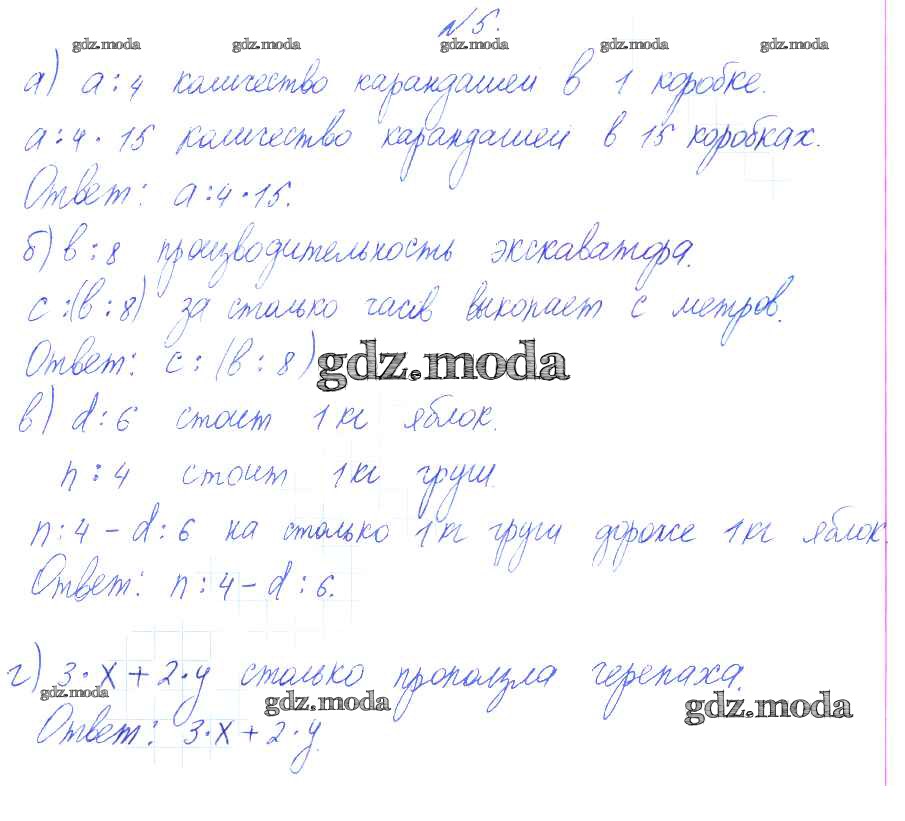 №5.
gdz.moda gdz.moda gdz.moda gdz.moda
а) а:4 количество карандашей в 1 коробке.
а:4·15 количество карандашей в 15 коробках.
Ответ: а:4·15.
б) в:8 производительность экскаватора.
с:(в:8) за столько часов выкопает с метров.
Ответ: с:(в:8)
gdz.moda
в) d:6 стоит 1 кг яблок.
n:4 стоит 1 кг груш.
n:4-d:6 на столько 1 кг груш дороже 1 кг яблок.
Ответ: n:4-d:6.
г) 3·x+2·y столько проползла черепаха.
gdz.moda gdz.moda gdz.moda
Ответ: 3·x+2·y.